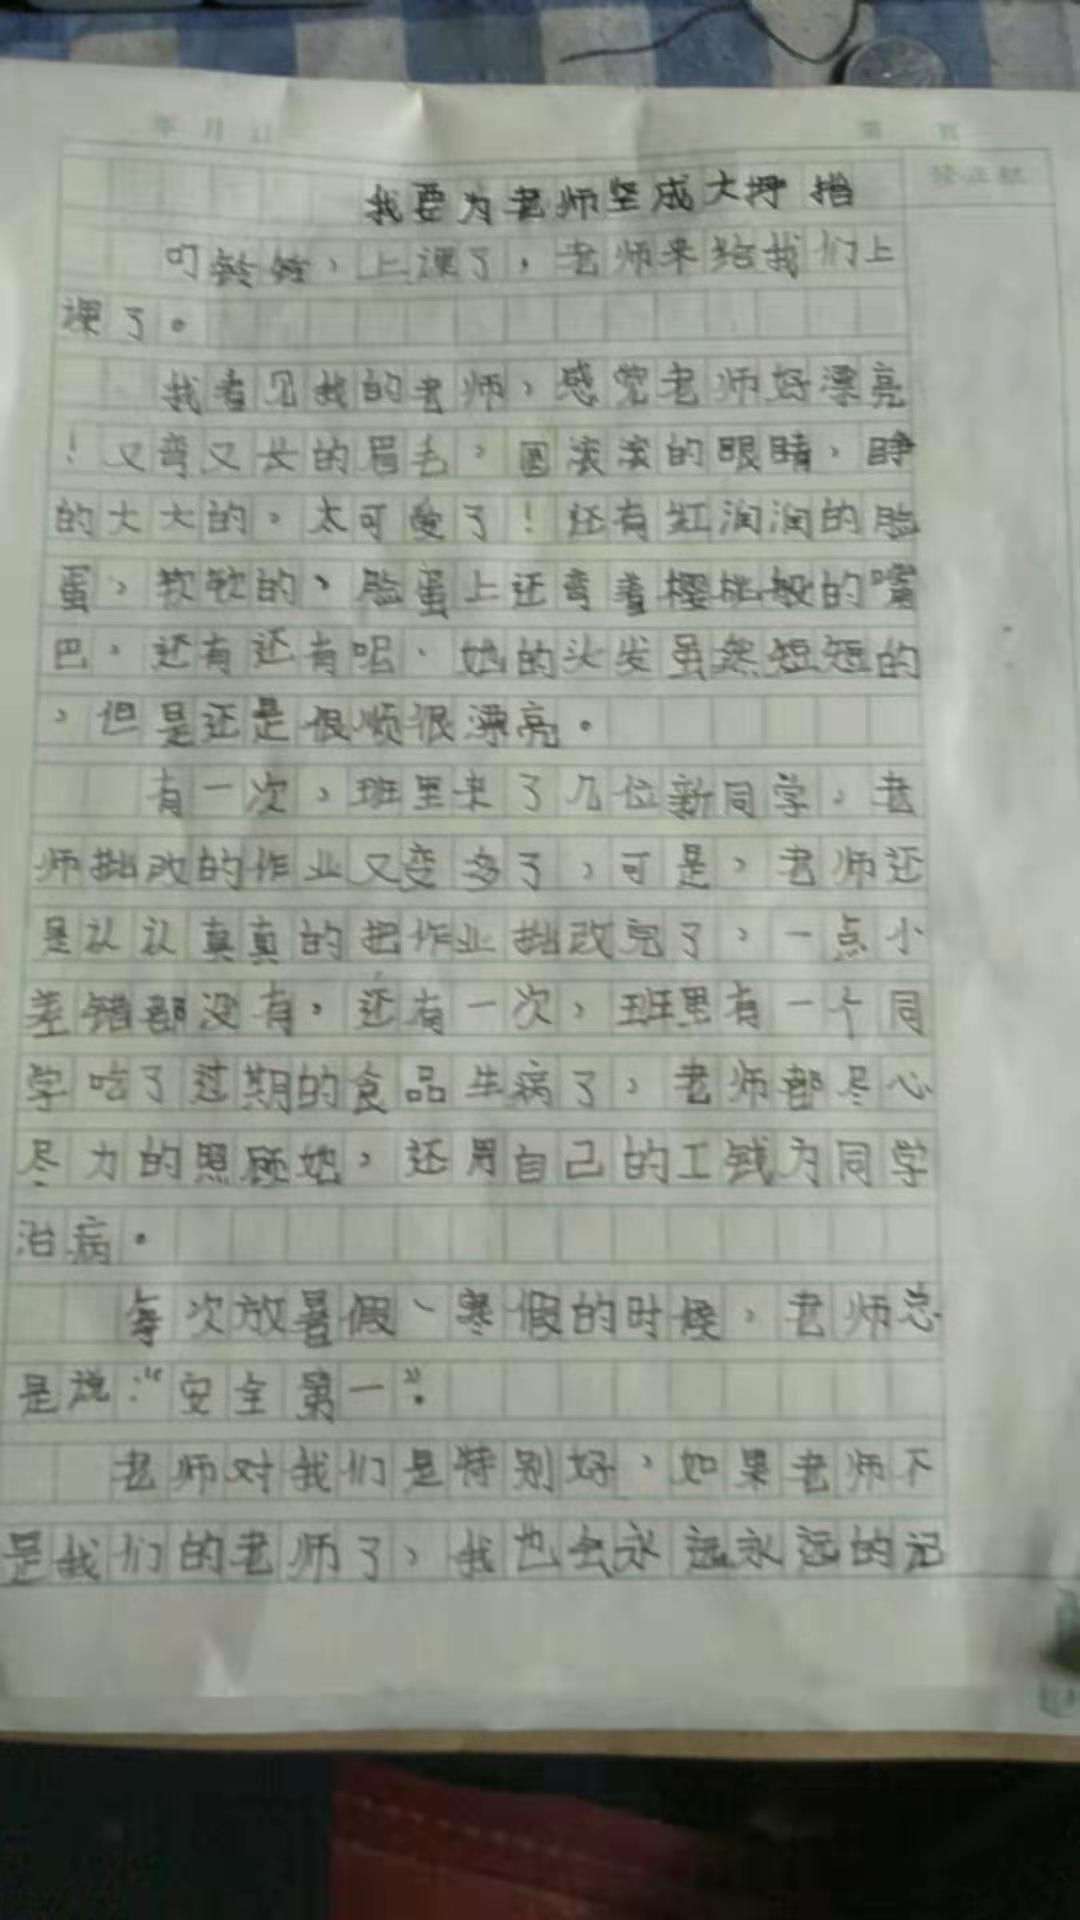 年 月 日 第 页
我要为老师坚成大拇指
叮铃铃，上课了，老师来给我们上
课了。
我看见我的老师，感觉老师好漂亮
！又弯又长的眉毛，圆滚滚的眼睛，睁
的大大的，太可爱了！还有红润润的脸
蛋，软软的，脸蛋上还弯着樱桃般的嘴
巴，还有还有呢，她的头发虽然短短的
，但是还是很顺很漂亮。
有一次，班里来了几位新同学，老
师批改的作业又变多了，可是，老师还
是认认真真的把作业批改完了，一点小
差错都没有，还有一次，班里有一个同
学吃了过期的食品生病了，老师都尽心
尽力的照顾她，还用自己的工钱为同学
治病。
每次放暑假、寒假的时候，老师总
是说：“安全第一”。
老师对我们是特别好，如果老师不
是我们的老师了，我也会永远永远的记